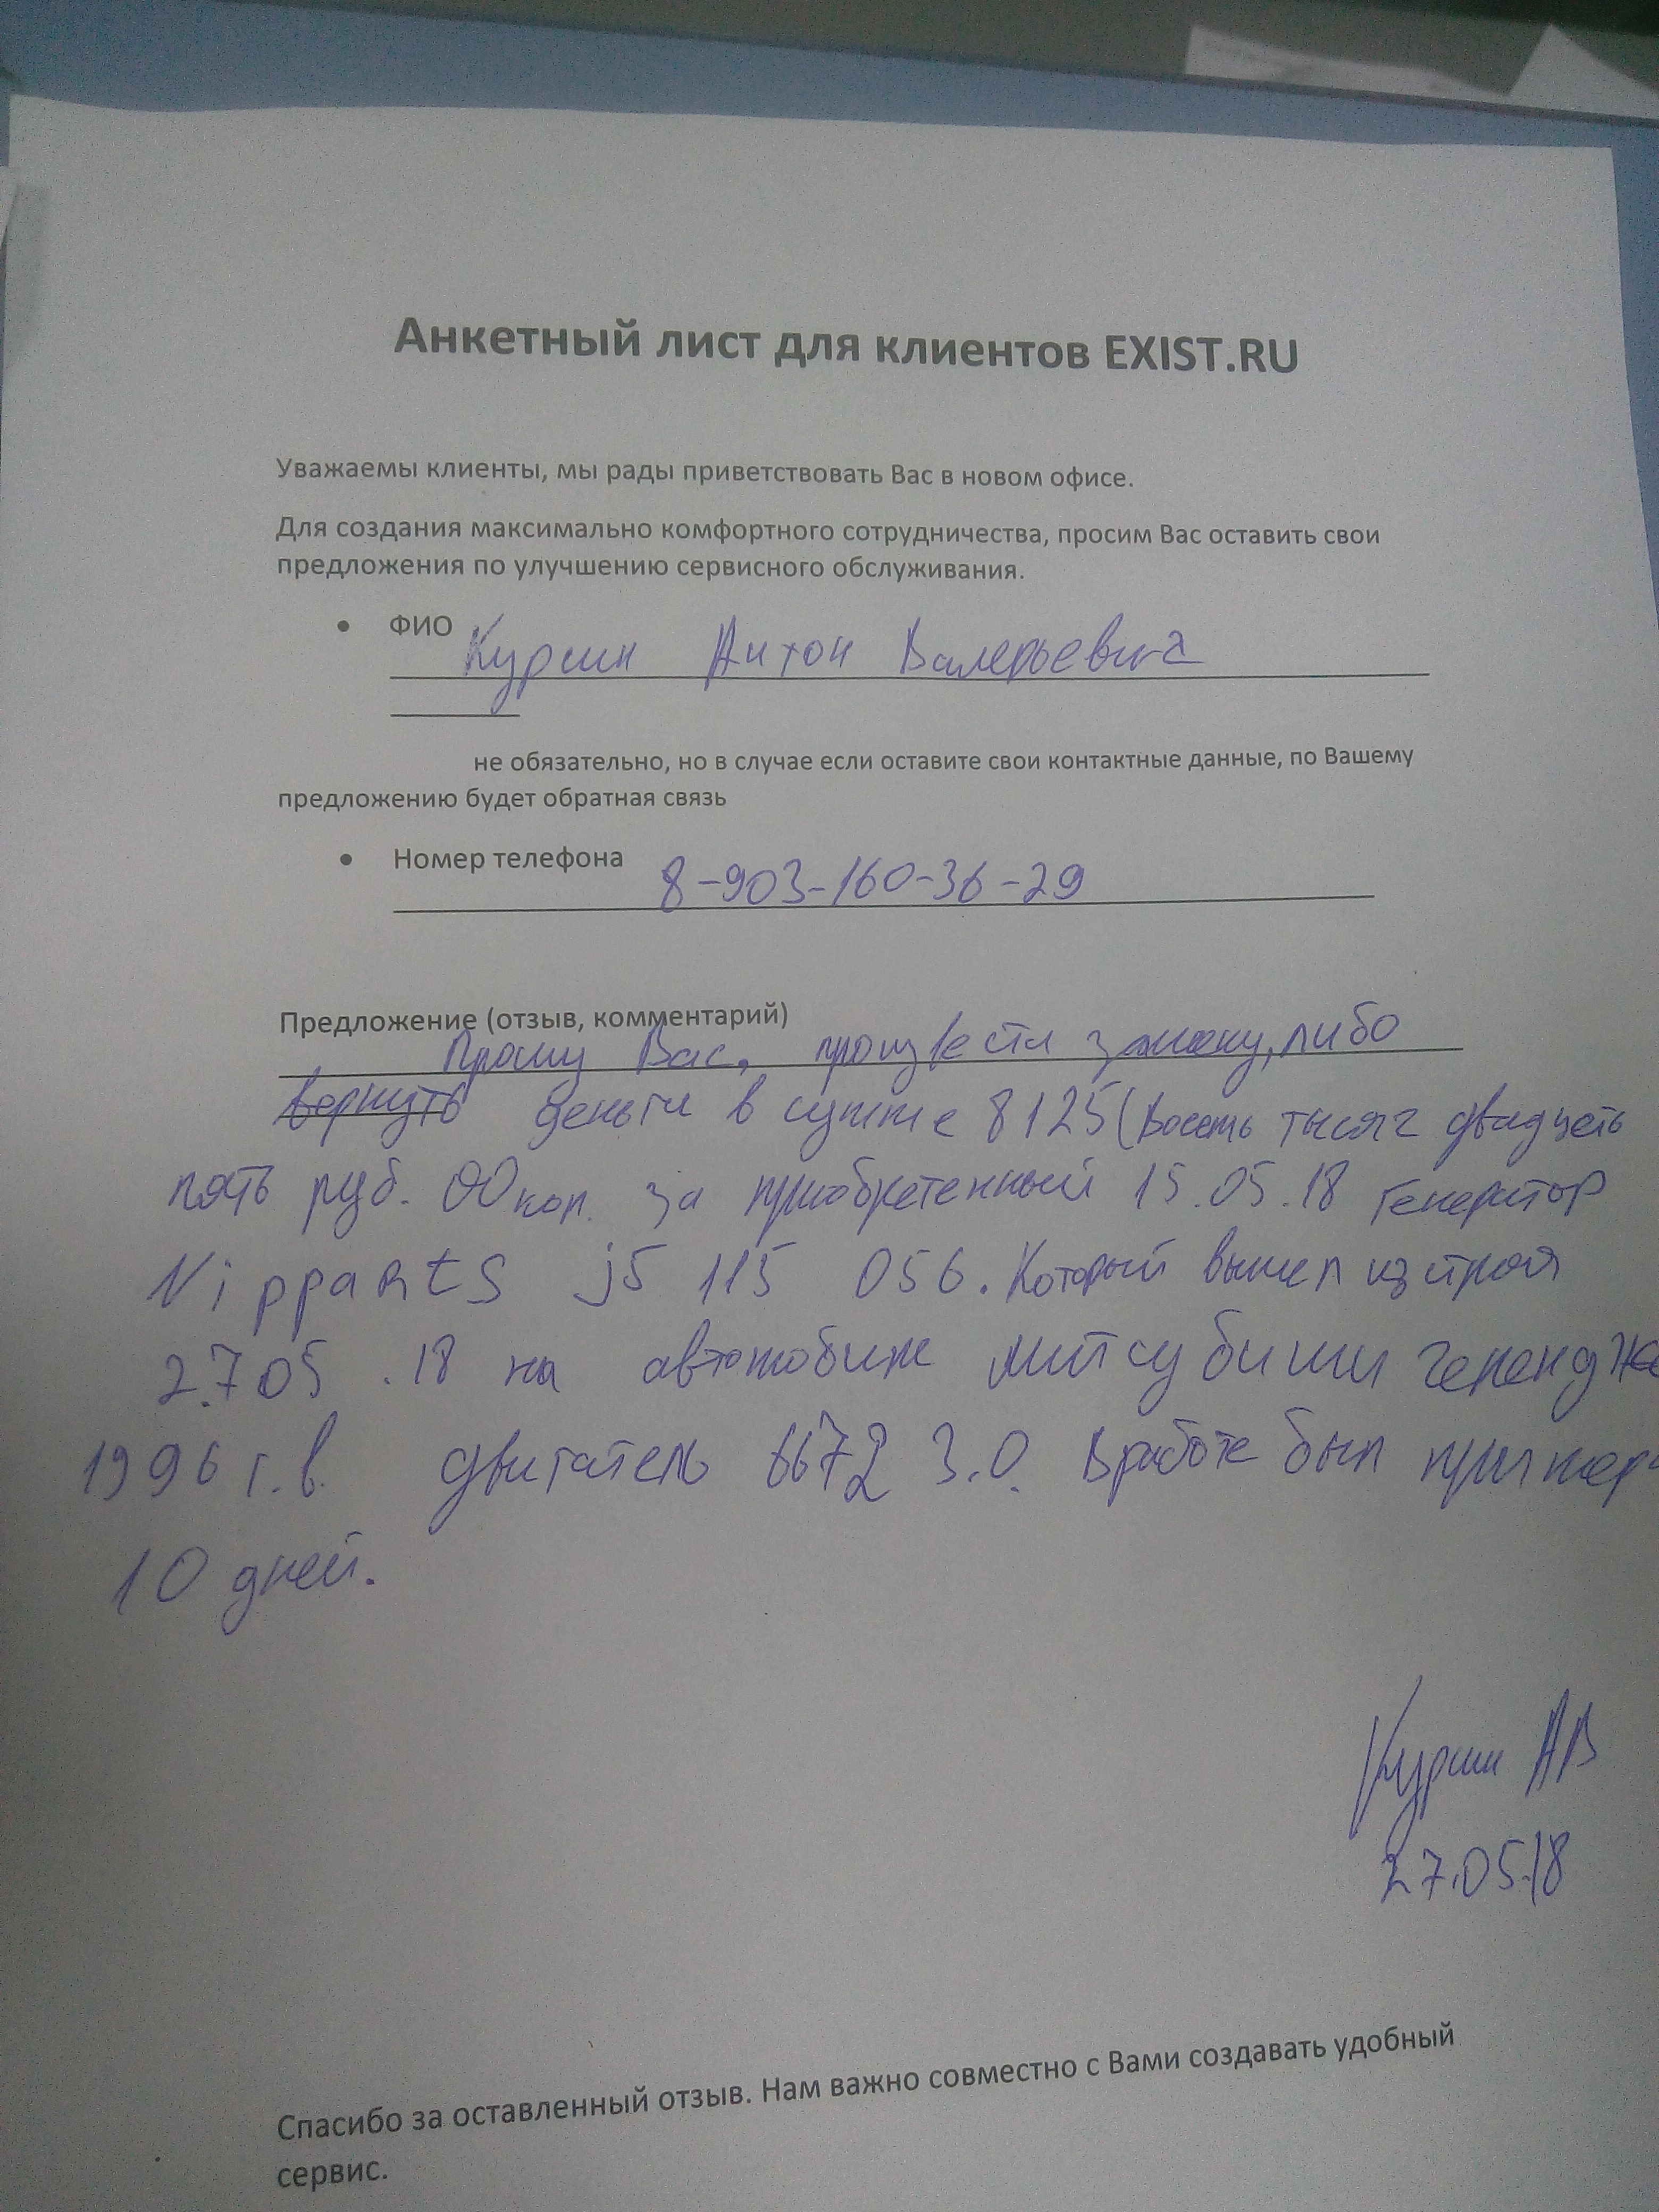 Анкетный лист для клиентов EXIST.RU
Уважаемы клиенты, мы рады приветствовать Вас в новом офисе.
Для создания максимально комфортного сотрудничества, просим Вас оставить свои
предложения по улучшению сервисного обслуживания.
• ФИО Курсин Антон Валерьевич
не обязательно, но в случае если оставите свои контактные данные, по Вашему
предложению будет обратная связь
• Номер телефона 8-903-160-36-29
Предложение (отзыв, комментарий)
Прошу Вас, произвести замену, либо
вернуть деньги в сумме 8125 (Восемь тысяч двадцеть
пять руб. 00 коп. за приобретенный 15.05.18 Генератор
Nipparts j5 115 056. Который вышел из строя
27.05.18 на автомобиле митсубиши челендже
1996 г.в. двигатель 6G72 3.0. В работе был пример
10 дней.
Курсин АВ
27.05.18
Спасибо за оставленный отзыв. Нам важно совместно с Вами создавать удобный
сервис.